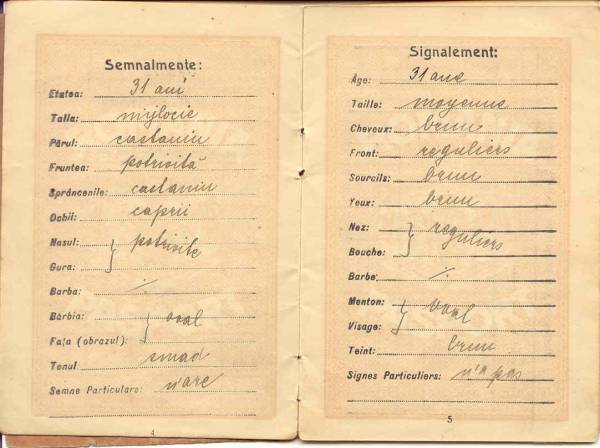 Semnalmente:
Etatea: 31 ani
Talia: mijlocie
Părul: castaniu
Fruntea: potrivită
Sprâncenile: castaniu
Ochii: caprii
Nasul: potrivite
Gura:
Barba: ·/.
Bărbia: oval
Fața (obrazul):
Tenul: smad
Semne Particulare: n'are
4
Signalement:
Âge: 31 ane
Taille: moyenne
Cheveux: brun
Front: reguliers
Sourcils: brun
Yeux: brun
Nez: reguliers
Bouche:
Barbe: ·/.
Menton: oval
Visage:
Teint: brun
Signes Particuliers: n'a pas
5